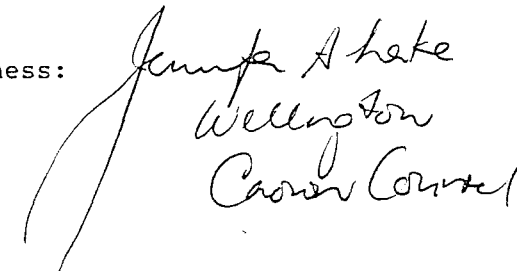 ness: Jennifer A Lake
Wellington
Crown Counsel